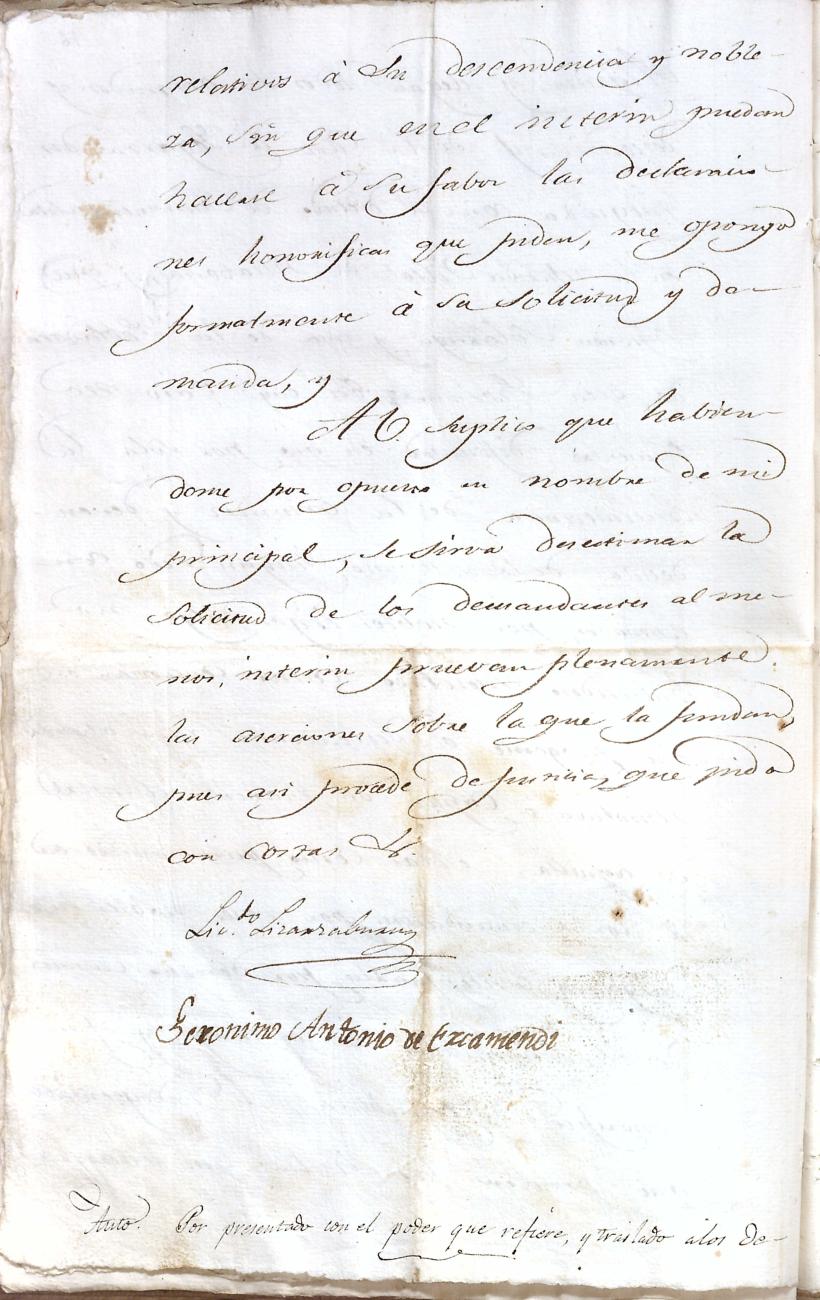 relativos à Su descendencia y noble-
za, sin que en el interin puedan
hacerse à Su fabor las declaracio-
nes honorificas que piden, me opongo
formalmente à su Solicitud y de-
manda, y
A V. Suplico que habien-
dome por opuesto en nombre de mi
principal, se sirva desestimar la
Solicitud de los demandantes al me-
nos, interin pruevan plenamente
las aserciones sobre la que la fundan,
pues asi procede de justicia, que pido
con costas &
Lic.do Lizarzaburu
Geronimo Antonio de Ezcamendi
Auto. Por presentado con el poder que refiere, y traslado alos de-